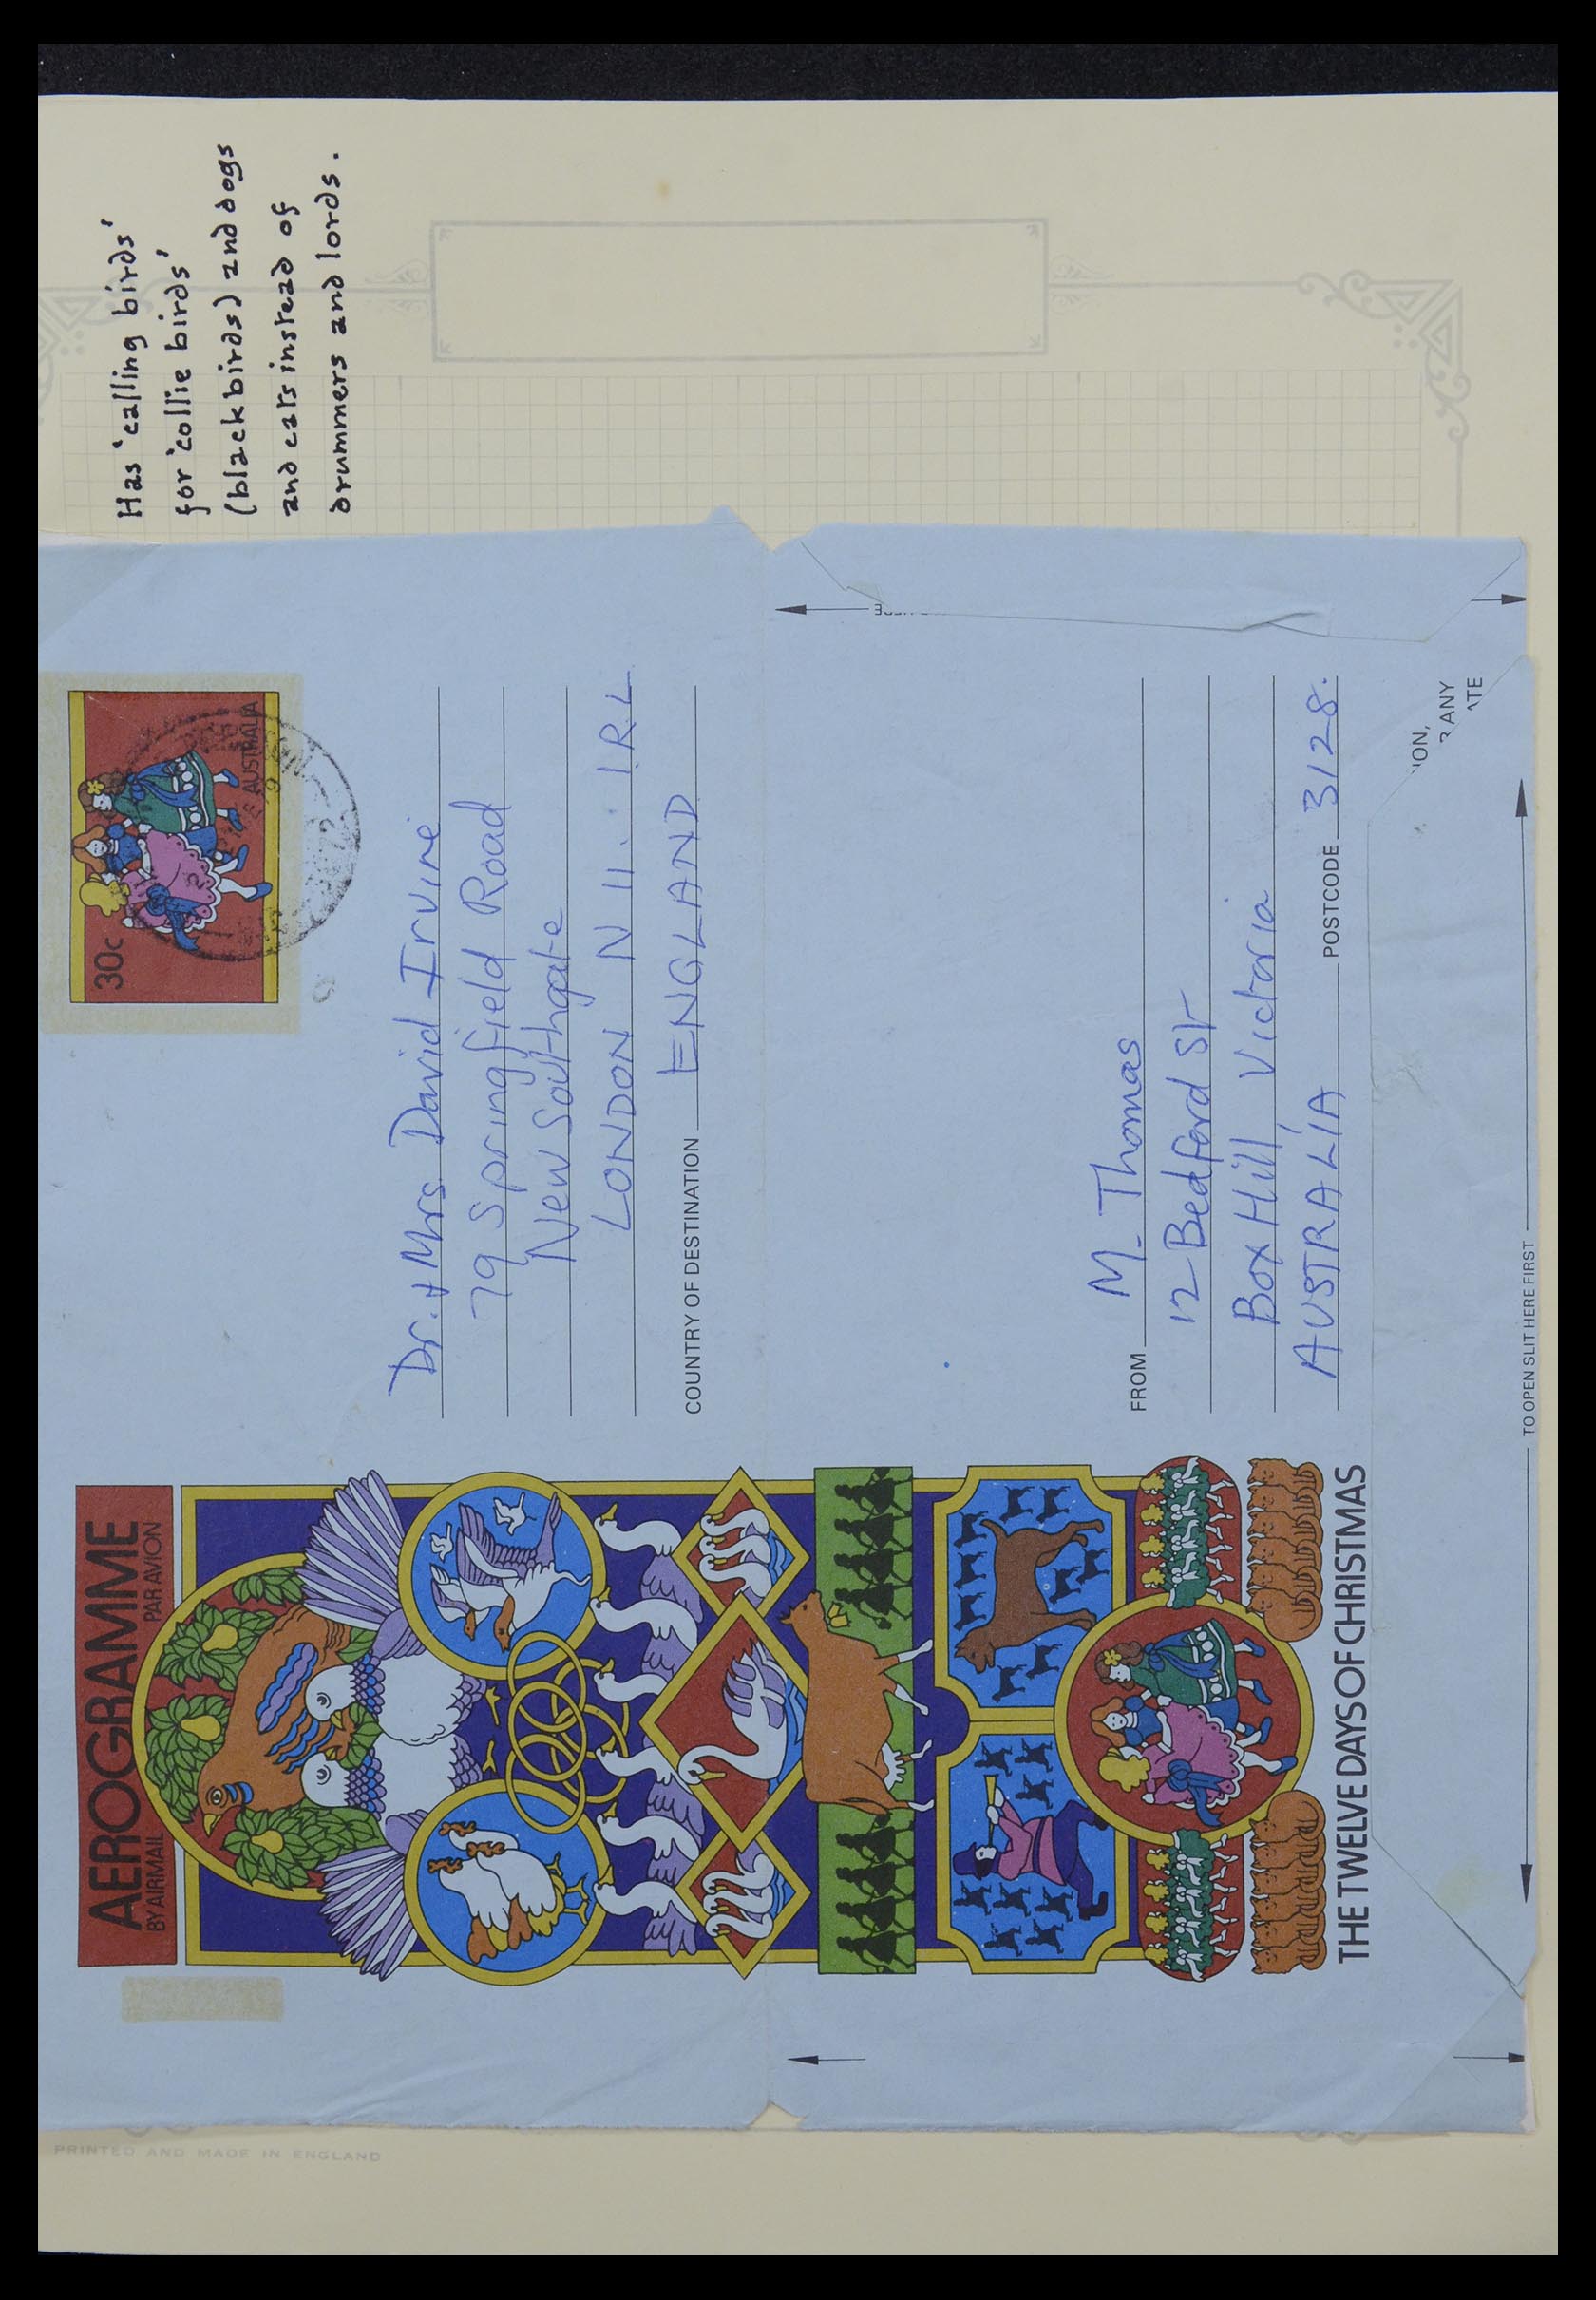 Has 'calling birds'
for 'collie birds'
(blackbirds) and dogs
and cats instead of
drummers and lords.
AEROGRAMME
BY AIRMAIL PAR AVION
30c
AUSTRALIA
Dr. & Mrs David Irvine
79 Springfield Road
New Southgate
LONDON N 11. 1RL
COUNTRY OF DESTINATION ENGLAND
FROM M. Thomas
12 Bedford St
Box Hill Victoria
AUSTRALIA POSTCODE 3128.
THE TWELVE DAYS OF CHRISTMAS
TO OPEN SLIT HERE FIRST
ANY
PRINTED AND MADE IN ENGLAND